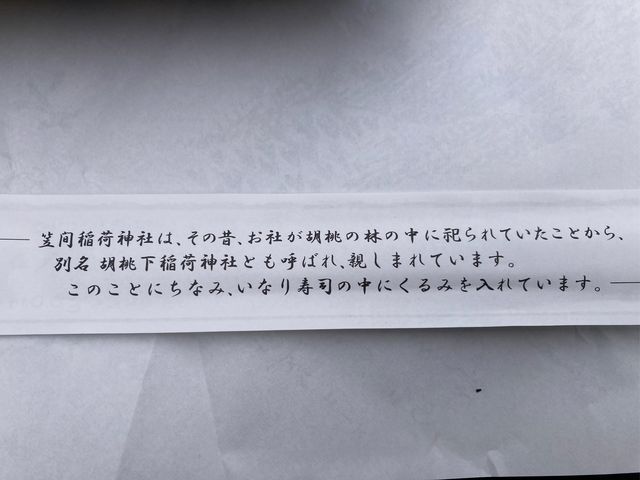 笠间稲荷神社は、その昔、お社が胡桃の林の中に祀られていたことから、
別名 胡桃下稲荷神社とも呼ばれ、親しまれています。
このことにちなみ、いなり寿司の中にくるみを入れています。